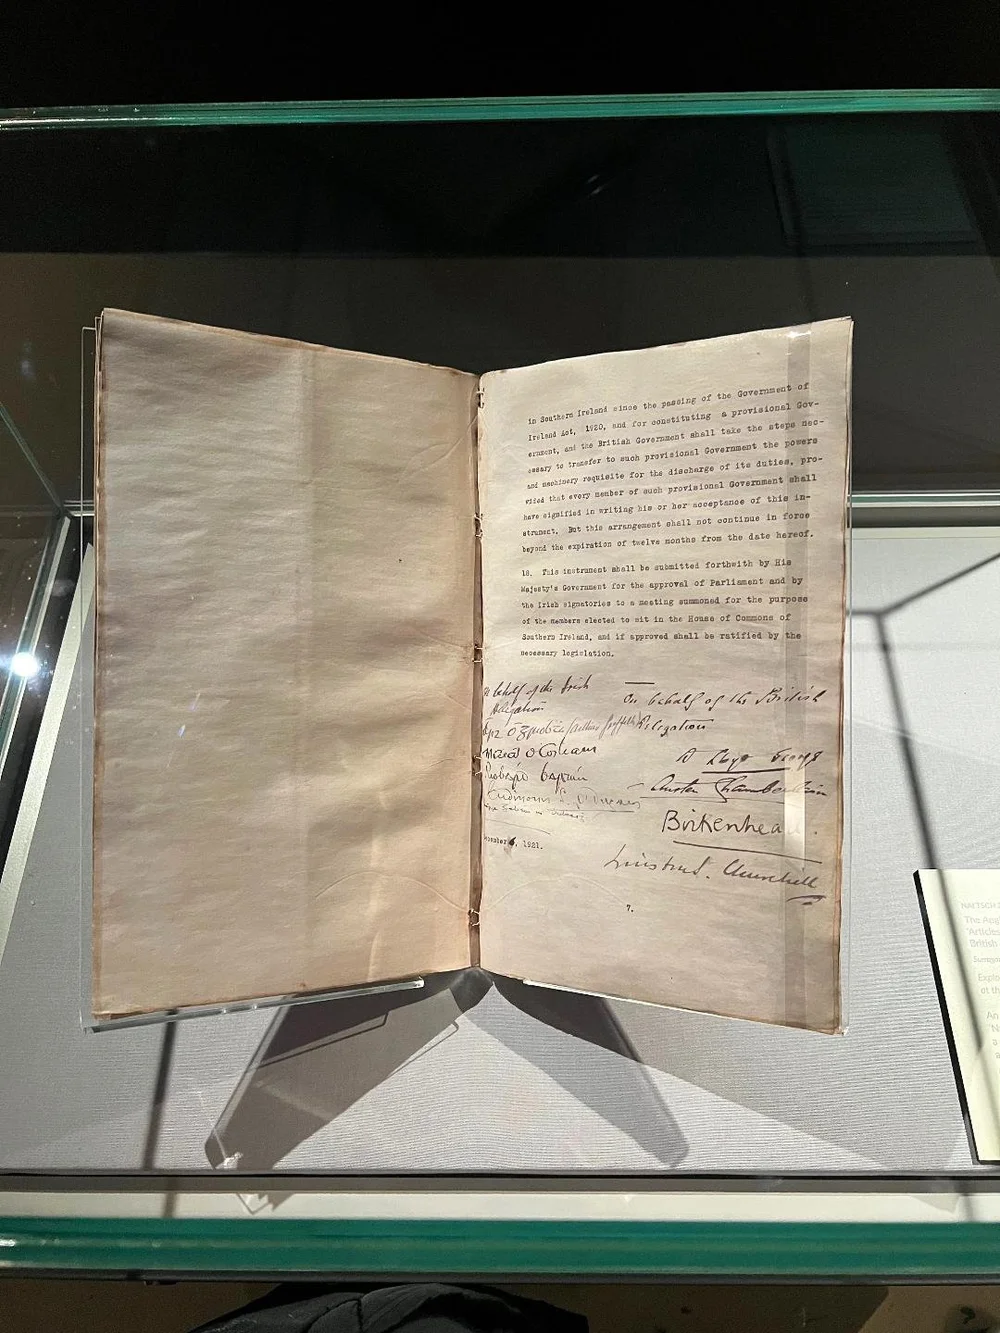 in Southern Ireland since the passing of the Government of
Ireland Act, 1920, and for constituting a provisional Gov-
ernment, and the British Government shall take the steps nec-
essary to transfer to such provisional Government the powers
and machinery requisite for the discharge of its duties, pro-
vided that every member of such provisional Government shall
have signified in writing his or her acceptance of this in-
strument. But this arrangement shall not continue in force
beyond the expiration of twelve months from the date hereof.
18. This instrument shall be submitted forthwith by His
Majesty's Government for the approval of Parliament and by
the Irish signatories to a meeting summoned for the purpose
of the members elected to sit in the House of Commons of
Southern Ireland, and if approved shall be ratified by the
necessary legislation.
behalf of the Irish
Delegation
On behalf of the British
Delegation
D Lloyd George
Austen Chamberlain
Birkenhead.
Winston S. Churchill
6, 1921.
7.
The
'Articles
British